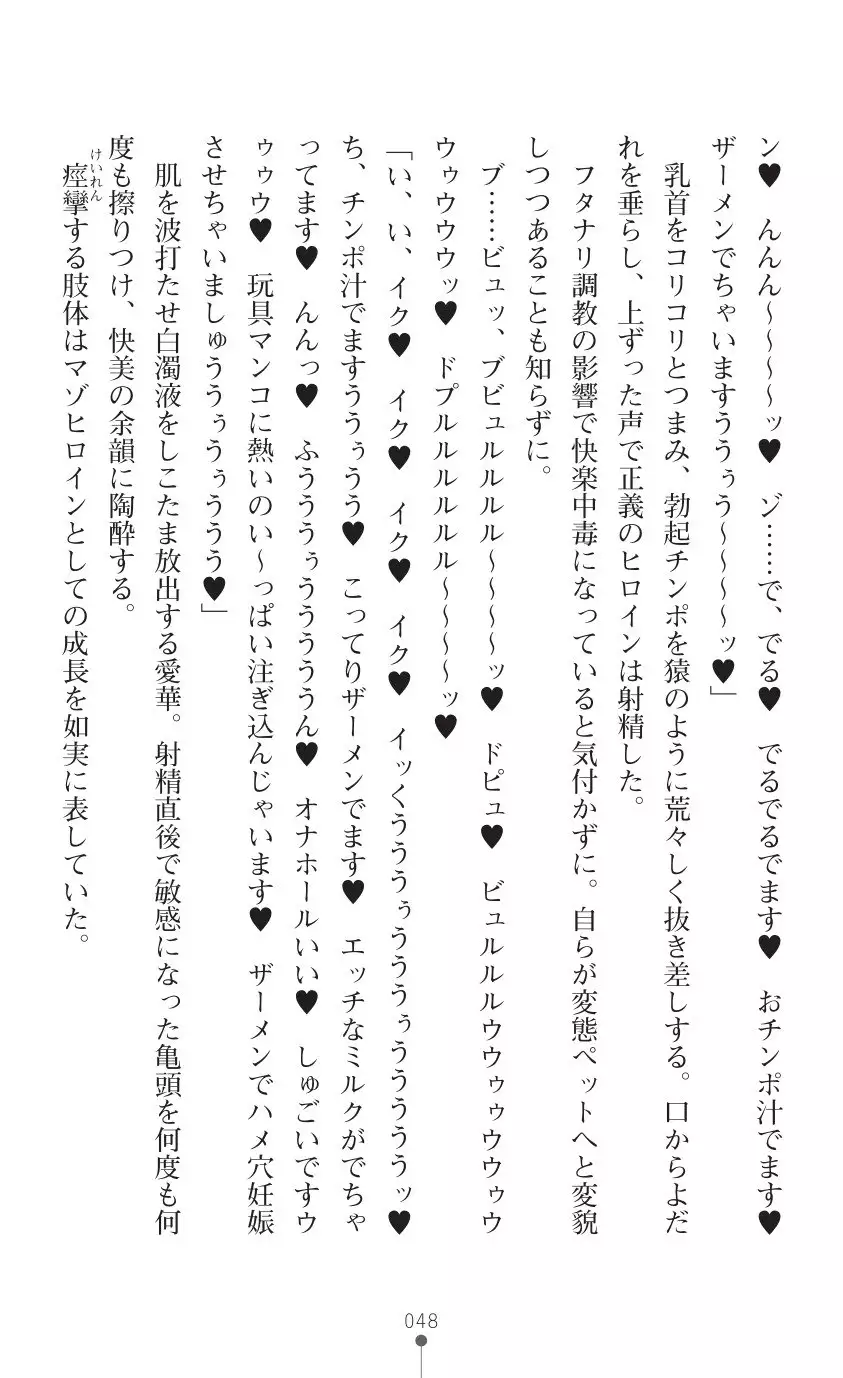 ン♥　んんん～～～～ッ♥　ゾ……で、でる♥　でるでるでます♥　おチンポ汁でます♥
ザーメンでちゃいますううぅう～～～～ッ♥」
　乳首をコリコリとつまみ、勃起チンポを猿のように荒々しく抜き差しする。口からよだ
れを垂らし、上ずった声で正義のヒロインは射精した。
　フタナリ調教の影響で快楽中毒になっていると気付かずに。自らが変態ペットへと変貌
しつつあることも知らずに。
　ブ……ビュッ、ブビュルルルル～～～～ッ♥　ドピュ♥　ビュルルルウウゥゥウウゥウ
ウゥウウウッ♥　ドプルルルルルル～～～～ッ♥
「い、い、イク♥　イク♥　イク♥　イク♥　イッくうううぅうううぅうううううッ♥
ち、チンポ汁でますううぅうう♥　こってりザーメンでます♥　エッチなミルクがでちゃ
ってます♥　んんっ♥　ふうううぅうううううん♥　オナホールいい♥　しゅごいですウ
ゥゥウ♥　玩具マンコに熱いのい～っぱい注ぎ込んじゃいます♥　ザーメンでハメ穴妊娠
させちゃいましゅううぅうぅううう♥」
　肌を波打たせ白濁液をしこたま放出する愛華。射精直後で敏感になった亀頭を何度も何
度も擦りつけ、快美の余韻に陶酔する。
　痙攣けいれんする肢体はマゾヒロインとしての成長を如実に表していた。
048